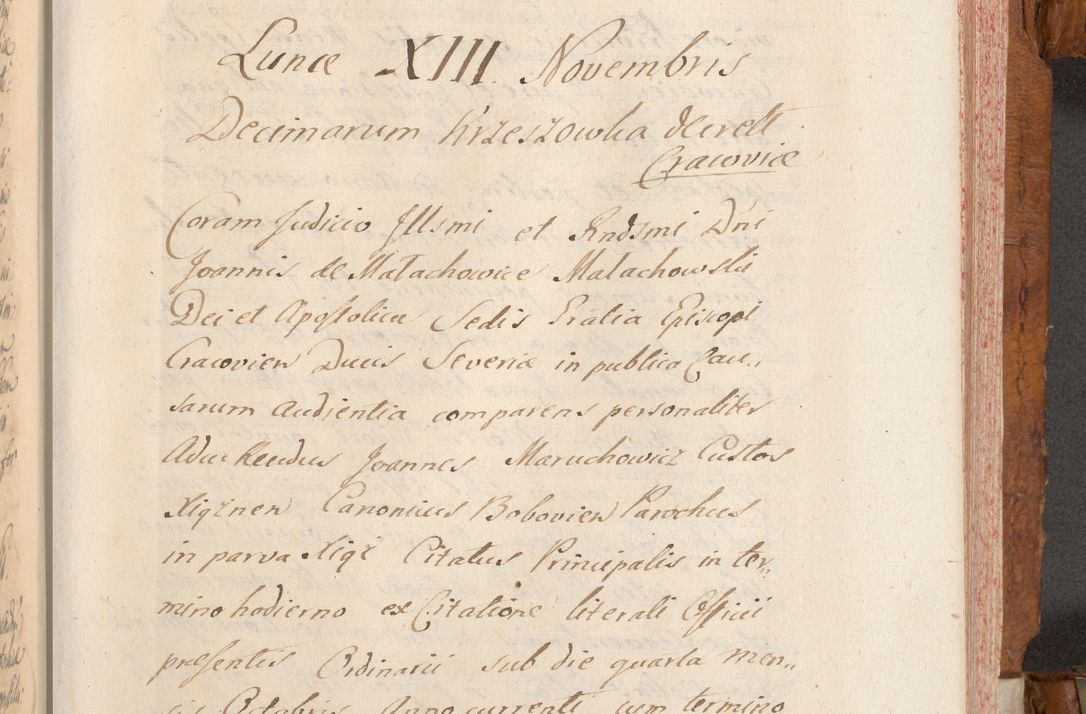 Lunæ XIII Novembris
Decimarum Krzeszowka decrett
Cracoviæ
Coram Judicio Jllsmi et Rndsmi Dni
Joannis de Małachowice Małachowski
Dei et Apostolicæ Sedis Gratia Episcopi
Cracovien Ducis Severiæ in publica Cau„
sarum Audientia comparens personaliter
Joannes Maruchowicz Custos
Xiąznen Canonicus Bobovien Parochus
in parva Xiąz Citatus Principalis in ter„
mino hodierno ex Citatione literali Officii
præsentis Ordinarii sub die quarta men„
sis Octobris Anno currenti cum termino